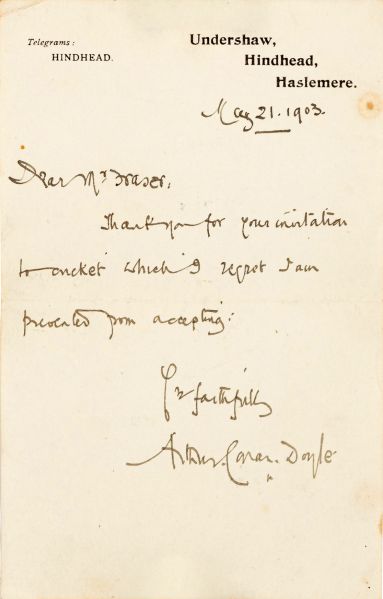 Telegrams:
HINDHEAD.
Undershaw,
Hindhead,
Haslemere.
May 21. 1903.
Dear Mr Fraser,
Thank you for your invitation
to cricket which I regret I am
prevented from accepting.
Yrs faithfully
Arthur Conan Doyle